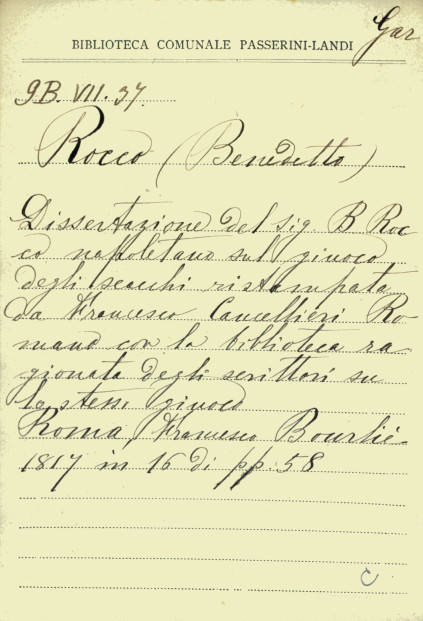 Gar
BIBLIOTECA COMUNALE PASSERINI-LANDI
9B. VII. 37.
Rocco (Benedetto)
Dissertazione del sig B Roc
co napoletano sul giuoco
degli scacchi ristampata
da Francesco Cancellieri Ro-
mano con la biblioteca ra
gionata degli scrittori su
lo stesso giuoco
Roma, Francesco Bourlié-
1817 in 16 di pp. 58
C